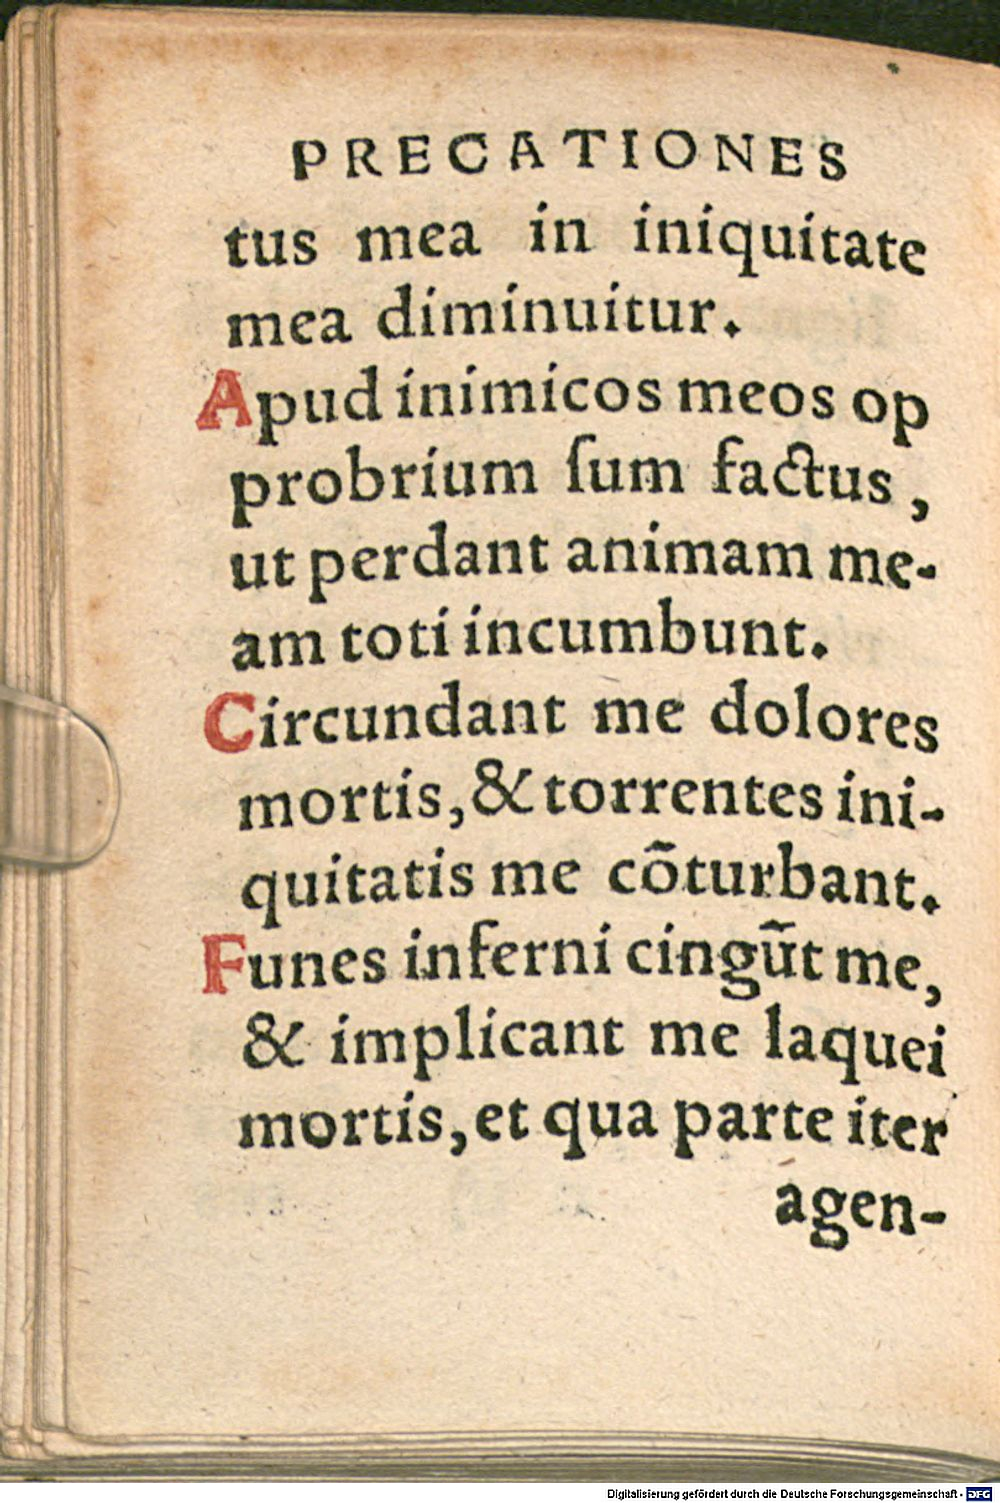 PRECATIONES
tus mea in iniquitate
mea diminuitur.
Apud inimicos meos op
probrium ſum factus,
ut perdant animam me-
am toti incumbunt.
Circundant me dolores
mortis, & torrentes ini-
quitatis me cõturbant.
Funes inferni cingũt me,
& implicant me laquei
mortis, et qua parte iter
agen-
Digitalisierung gefördert durch die Deutsche Forschungsgemeinschaft - DFG